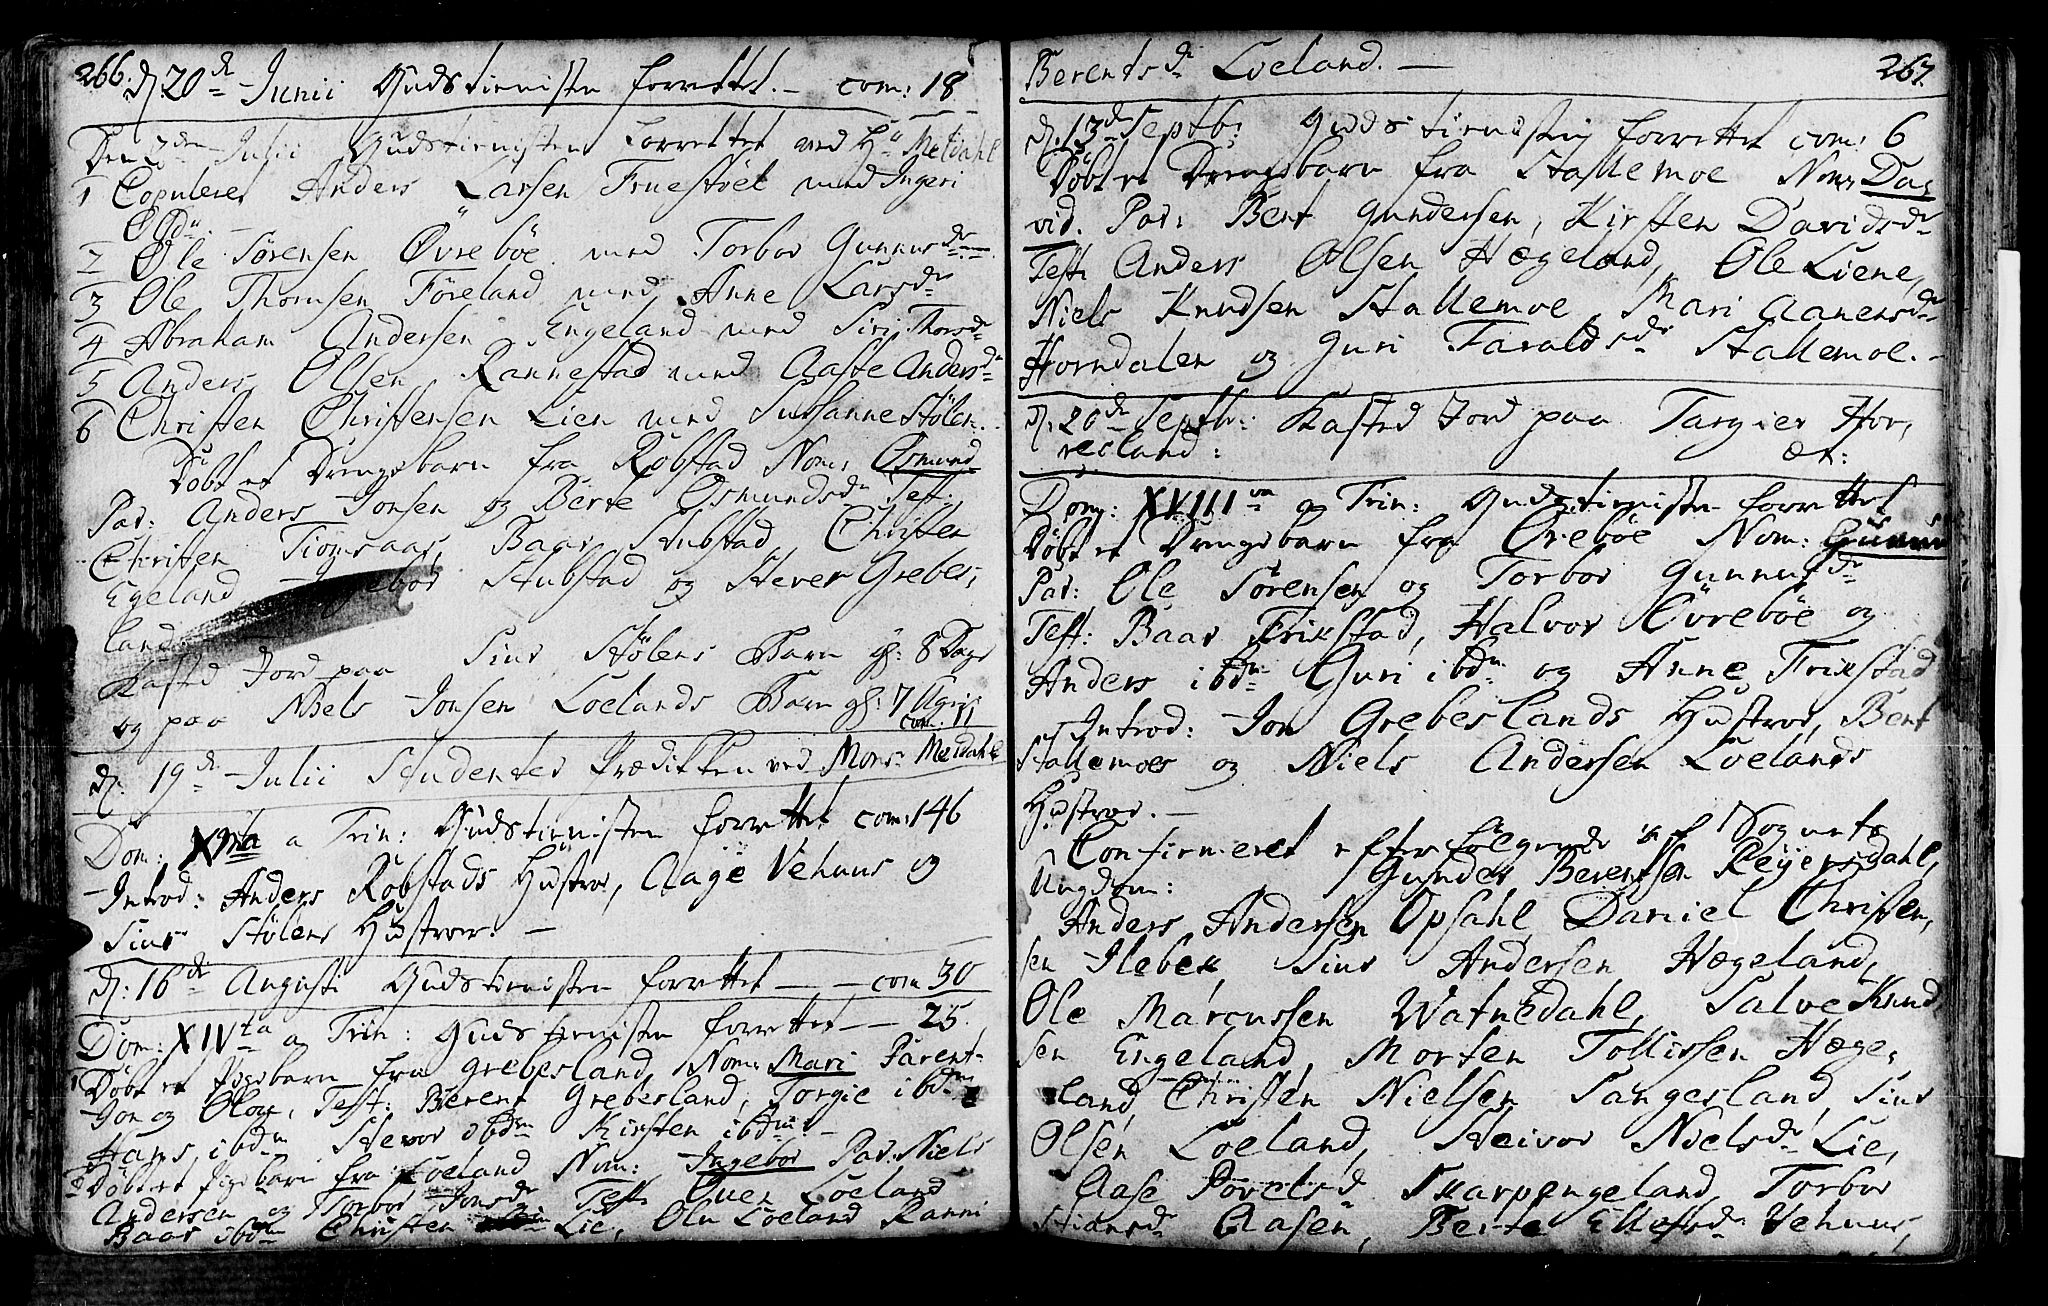 266. d. 20de Junii Gudstienisten forrettet. - com: 18
Den Julii Gudstienisten forrettet med Hr Meldahl
1 Copuleret Anders Larsen Fruestöel med Ingeri
Olsdr
2 Ole Sörensen Övreböe med Torbor Gunnusdr
3 Ole Thomsen Föreland med Anne Larsdr
4 Abraham Andersen Engeland med Siri Thorsdr
5 Anders Olsen Rannestad med Aaste Andersdr
6 Christen Christensen Lien med Sussanne Stölen.
Döbt et Drengebarn fra Robstad Nom: Osmund
Par: Anders Jonsen og Berte Osmundsdr Test.
Christen Tiomsaas, Baar Stubstad, Christen
Egeland, Ingebor Stubstad og Stever Grebes,
land
Kasted Jord paa Siur Stölens Barn gl: 8 Dage
og paa Niels Jonsen Loelands Barn gl: 7 Uger
com: 11
d. 19de Julii Studenter Prædikken ved Mons: Meldahl
Dom: a Trin: Gudstienisten forrettet com: 146
Introd: Anders Robstads Hustroe, Aage Vehuus og
Siur Stölens Hustroer. -
d: 16de Augusti Gudstienisten forrettet - - com 30
Dom: XIVta a Trin: Gudstienisten forrettet - - 25.
1 Döbt et Pigebarn fra Grebesland, Nom: Mari Parent-
Jon og Olou, Test: Berent Grebesland, Torgie ibdm
Hans ibdm Stevor ibdm Kirsten ibdm -
2 Döbt et Pigebarn fra Loeland Nom: Ingebor Par: Niels
Andersen og Torbor Jonsdr Test: Even Loeland
Baar ibdm Christen Lie, Ole Loeland Ranni
Berentsdr Loeland. - 267.
d. 13de Septb: Gudstienisten forrettet com: 6
Döbt et Drengebarn fra Stallemoe Nom: Da,
vid. Par: Bent Gundersen, Kirsten Davidsdr
Test: Anders Olsen Hægeland, Ole Liene,
Niels Knudsen Stallemoe, Mari Aanensdr
Horndalen og Guri Taraldsdr Stallemoe. -
d: 20de Septbr: Kasted Jord paa Targier Hor,
resland: æt:
Dom: XVIIIva a Trin: Gudstienisten forrettet
Döbt et Drengebarn fra Övreböe Nom:
Par: Ole Sörensen og Torbor Gunnusdr
Test: Baar Frikstad, Halvor Övreböe og
Anders ibdm Guri ibdm og Anne Frikstad
Introd: Jon Grebeslands Hustroe, Bent
Stallemoes og Niels Andersen Loelands
Hustroe. -
Confirmeret efterfölgende af Sognets
Ungdom: Gunder Berentsen Reyersdahl,
Anders Andersen Opsahl, Daniel Christen,
sen Ilebek, Siur Andersen Hægeland,
Ole Marcussen Watnedahl, Salve Knud
sen Engeland, Morten Tollissen Hæge,
land, Christen Nielsen Tangesland, Siur
Olsen Loeland, Steivor Nielsdr Lie,
Aase Povelsd Skarpengeland, Torbor
Stiansdr Aasen, Berte Ellefsdr Vehuus,